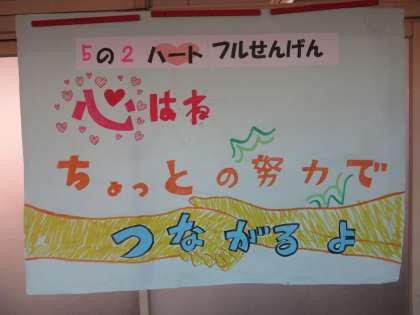 5の2 ハートフルせんげん
心はね
ちょっとの努力で
つながるよ